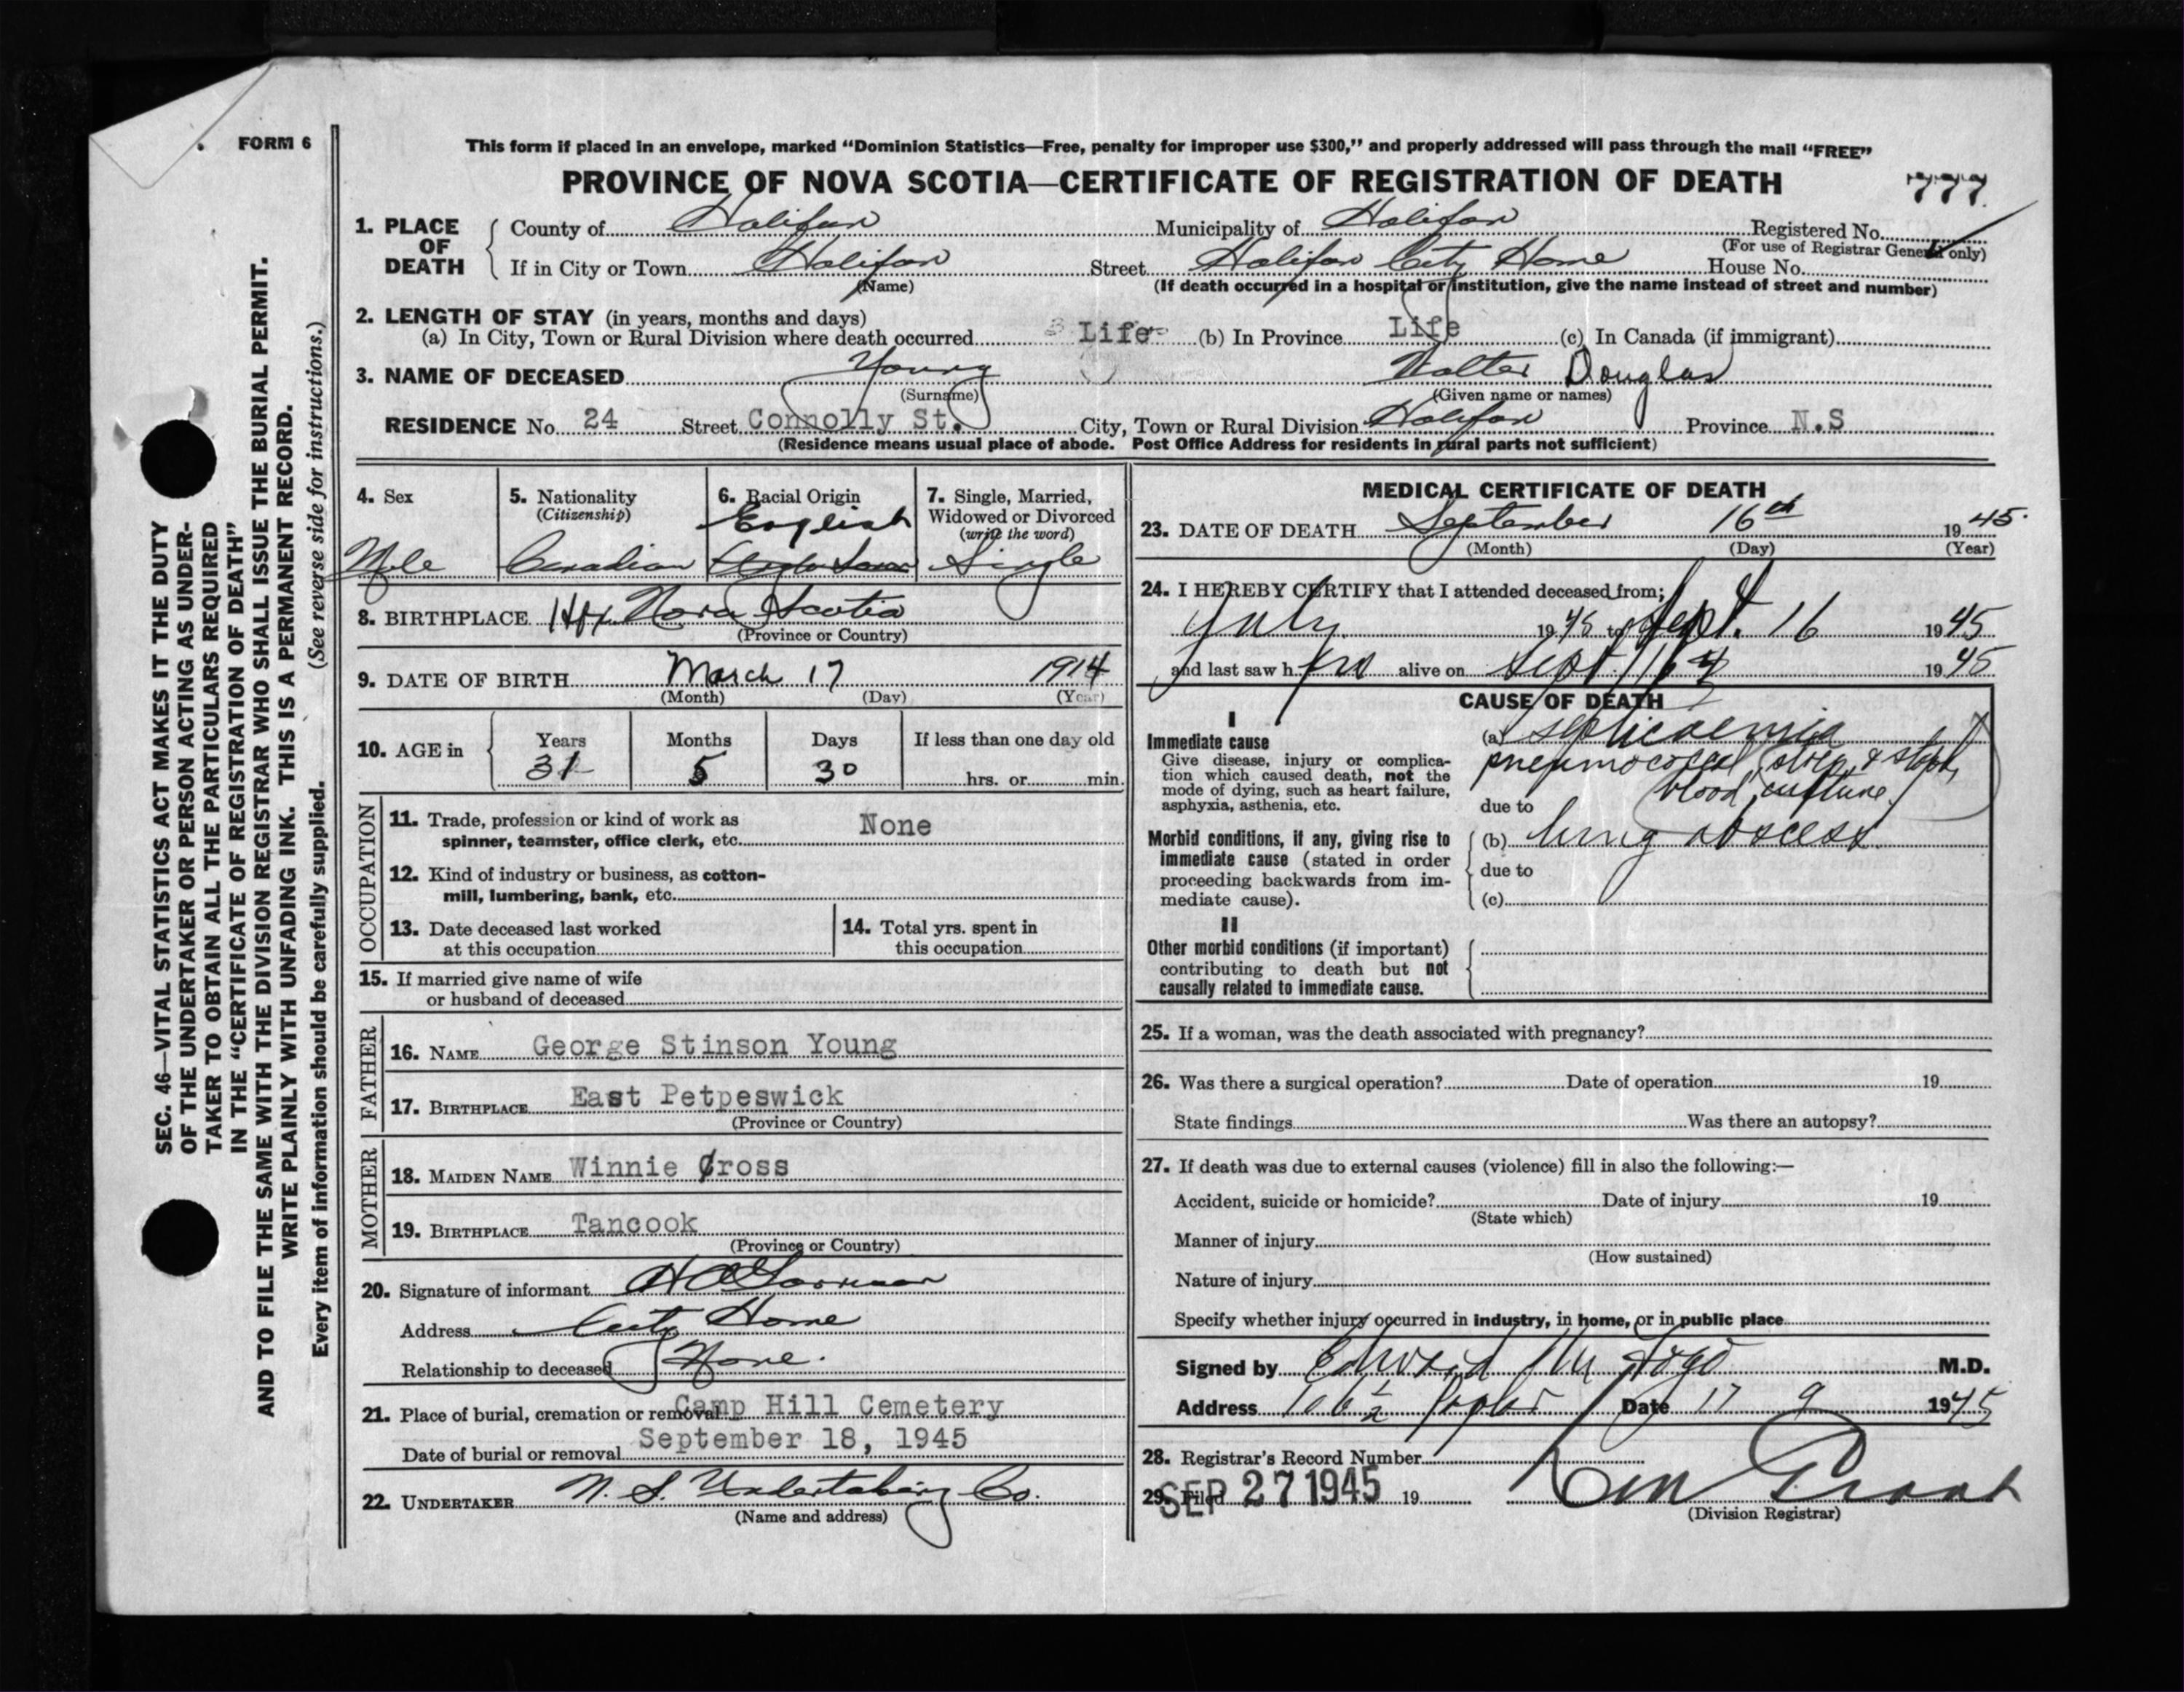 FORM 6
This form if placed in an envelope, marked “Dominion Statistics—Free, penalty for improper use $300,” and properly addressed will pass through the mail “FREE”
PROVINCE OF NOVA SCOTIA—CERTIFICATE OF REGISTRATION OF DEATH 777
1. PLACE OF DEATH
County of Halifax Municipality of Halifax Registered No.
(For use of Registrar General only)
If in City or Town Halifax Street Halifax City Home House No.
(Name) (If death occurred in a hospital or institution, give the name instead of street and number)
2. LENGTH OF STAY (in years, months and days)
(a) In City, Town or Rural Division where death occurred Life (b) In Province Life (c) In Canada (if immigrant)
3. NAME OF DECEASED Young Walter Douglas
(Surname) (Given name or names)
RESIDENCE No. 24 Street Connolly St. City, Town or Rural Division Halifax Province N.S
(Residence means usual place of abode. Post Office Address for residents in rural parts not sufficient)
4. Sex
Male
5. Nationality
(Citizenship)
Canadian
6. Racial Origin
English
7. Single, Married,
Widowed or Divorced
(write the word)
Single
8. BIRTHPLACE Hfx. Nova Scotia
(Province or Country)
9. DATE OF BIRTH March 17 1914
(Month) (Day) (Year)
10. AGE in
Years Months Days If less than one day old
31 5 30 hrs. or min.
OCCUPATION
11. Trade, profession or kind of work as
spinner, teamster, office clerk, etc. None
12. Kind of industry or business, as cotton-
mill, lumbering, bank, etc.
13. Date deceased last worked
at this occupation
14. Total yrs. spent in
this occupation
15. If married give name of wife
or husband of deceased
FATHER
16. NAME George Stinson Young
17. BIRTHPLACE East Petpeswick
(Province or Country)
MOTHER
18. MAIDEN NAME Winnie Cross
19. BIRTHPLACE Tancook
(Province or Country)
20. Signature of informant
Address City Home
Relationship to deceased None.
21. Place of burial, cremation or removal Camp Hill Cemetery
Date of burial or removal September 18, 1945
22. UNDERTAKER N. S. Undertaking Co.
(Name and address)
MEDICAL CERTIFICATE OF DEATH
23. DATE OF DEATH September 16th 1945.
(Month) (Day) (Year)
24. I HEREBY CERTIFY that I attended deceased from;
July 1945 to Sept. 16 1945
and last saw h im alive on Sept. 16 1945
CAUSE OF DEATH
I
Immediate cause
Give disease, injury or complica-
tion which caused death, not the
mode of dying, such as heart failure,
asphyxia, asthenia, etc.
(a) septicaemia
pneumococcal, strep, & staph,
blood culture
due to
Morbid conditions, if any, giving rise to
immediate cause (stated in order
proceeding backwards from im-
mediate cause).
(b) lung abscess.
due to
(c)
II
Other morbid conditions (if important)
contributing to death but not
causally related to immediate cause.
25. If a woman, was the death associated with pregnancy?
26. Was there a surgical operation? Date of operation 19
State findings Was there an autopsy?
27. If death was due to external causes (violence) fill in also the following:—
Accident, suicide or homicide? Date of injury 19
(State which)
Manner of injury
(How sustained)
Nature of injury
Specify whether injury occurred in industry, in home, or in public place
Signed by Edward M. Fogo M.D.
Address 106½ Date 17 9 1945
28. Registrar's Record Number
29. Filed SEP 27 1945 19
(Division Registrar)
SEC. 46—VITAL STATISTICS ACT MAKES IT THE DUTY
OF THE UNDERTAKER OR PERSON ACTING AS UNDER-
TAKER TO OBTAIN ALL THE PARTICULARS REQUIRED
IN THE “CERTIFICATE OF REGISTRATION OF DEATH”
AND TO FILE THE SAME WITH THE DIVISION REGISTRAR WHO SHALL ISSUE THE BURIAL PERMIT.
WRITE PLAINLY WITH UNFADING INK. THIS IS A PERMANENT RECORD.
Every item of information should be carefully supplied. (See reverse side for instructions.)